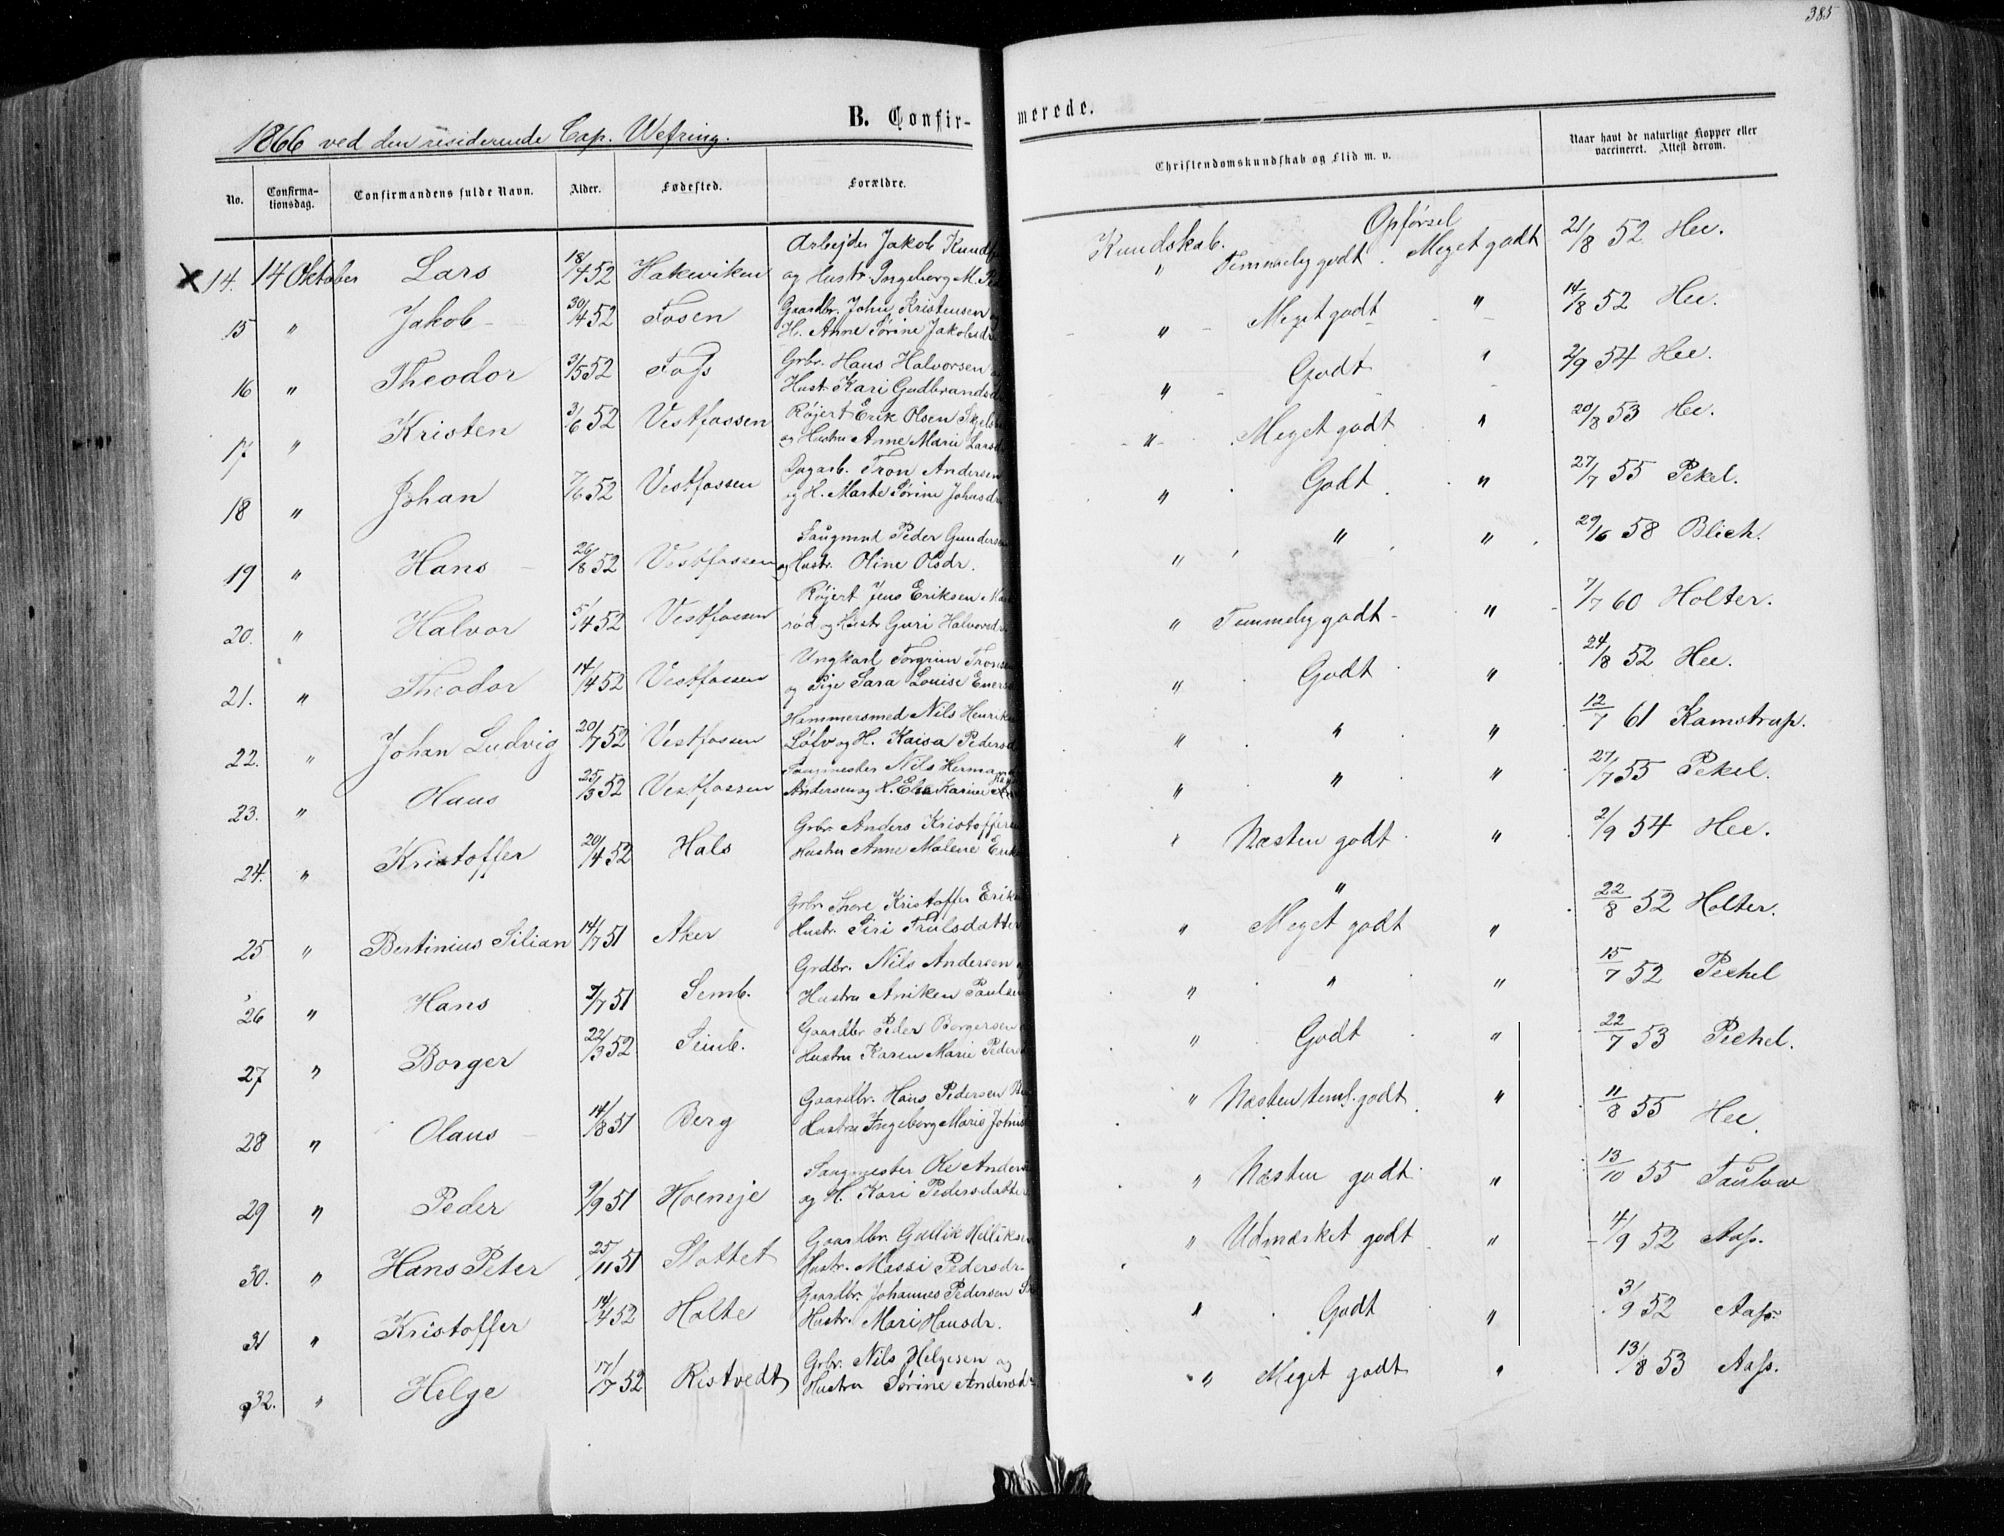 385
B. Confir-
merede.
1866 ved den residerende Cap. Wefring.
No.
Confirma-
tionsdag.
Confirmandens fulde Navn.
Alder.
Fødested.
Forældre.
Christendomskundskab og Flid m. v.
Naar havt de naturlige Kopper eller
vaccineret. Attest derom.
Kundskab. Opførsel
Arbejder Jakob
14. 14 Oktober Lars 18/4 52 Hakeviken og Hustr. Ingeborg M. " Temmelig godt. Meget godt 21/8 52 Hee.
Gaardbr. John Kristensen og
15 " Jakob 30/4 52 Fosen H. Anne Sørine Jakobsdr. " Meget godt " 14/8 52 Hee.
Grbr. Hans Halvorsen
16 " Theodor 3/5 52 Foss Hust. Kari Gudbrandsd " Godt " 2/9 54 Hee.
Røjert Erik Olsen
17 " Kristen 3/6 52 Vestfossen og Hustru Anne Marie Larsd " Meget godt " 20/8 53 Hee.
Dagarb. Tron Andersen
18 " Johan 7/6 52 Vestfossen og H. Marte Sørine Johnsdr " Godt " 27/7 55 Pekel.
Saugmnd Peder Gunders
19 " Hans 26/8 52 Vestfossen og Hustr. Oline Olsdr. " " " 29/6 58 Blich.
Røjert Jens Eriksen
20. " Halvor 5/4 52 Vestfossen rød og Hustr Guri Halvorsdr " Temmelig godt " 7/7 60 Holter.
Ungkarl Torgrim Trons
21. " Theodor 14/4 52 Vestfossen og Pige Sara Louise " Godt " 24/8 52 Hee.
Hammersmed Nils Henrik
22. " Johan Ludvig 20/7 52 Vestfossen Løfv og H. Kaisa Pedersd " " " 12/7 61 Kamstrup.
Saugmester Nils Herman
23. " Olaus 25/3 52 Vestfossen Andersen og H. Else Karine " " " 27/7 55 Pekel.
Grbr. Anders Kristoffersen
24. " Kristoffer 20/4 52 Hals Hustru Anne Malene Erik " Næsten godt " 2/9 54 Hee.
Grbr. Thore Kristoffer Erik "
25 " Bertinius Silian 14/7 51 Aker Hustr. Siri Trulsdatter " Meget godt " 22/8 52 Holter.
Grdbr. Nils Andersen
26 " Hans 7/7 51 Semb. Hustru Aniken Paulse " " " 15/7 52 Pechel
Gaardbr Peder Borgersen
27 " Borger 22/3 52 Semb. Hustru Karen Marie Peders " Godt " 22/7 53 Pechel.
Gaardbr. Hans Pedersen
28 " Olaus 14/8 51 Berg Hustru Ingeborg Marie Johns " Næsten teml. godt " 11/8 55 Hee.
Saugmester Ole Anders
29 " Peder 9/9 51 Hoensje og H. Kari Pedersdatter " Næsten godt " 13/10 55 Taulow
Gaardbr. Gullik Helliksen
30. " Hans Peter 25/11 51 Stottet Hustr. Massi Pedersdr. " Udmærket godt " 4/9 52 Aass.
Gaardbr. Johannes Pedersen
31 " Kristoffer 14/4 52 Holte Hustr. Mari Hansdr. " Godt " 3/9 52 Aass.
Grbr. Nils Helgesen og
32. " Helge 17/7 52 Ristvedt Hustru Sørine Andersd " Meget godt " 13/8 53 Aass.